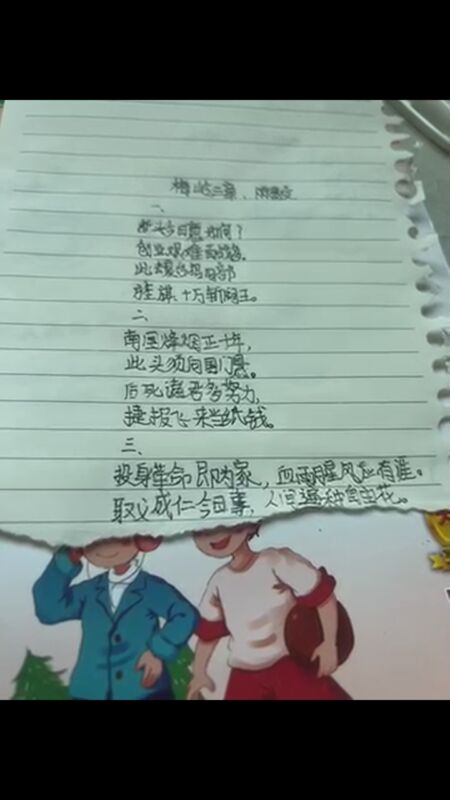 梅岭三章、陈毅
一、
断头今日意如何？
创业艰难百战多。
此去泉台招旧部
旌旗十万斩阎王。
二、
南国烽烟正十年，
此头须向国门悬。
后死诸君多努力，
捷报飞来当纸钱。
三、
投身革命即为家，血雨腥风应有涯。
取义成仁今日事，人间遍种自由花。